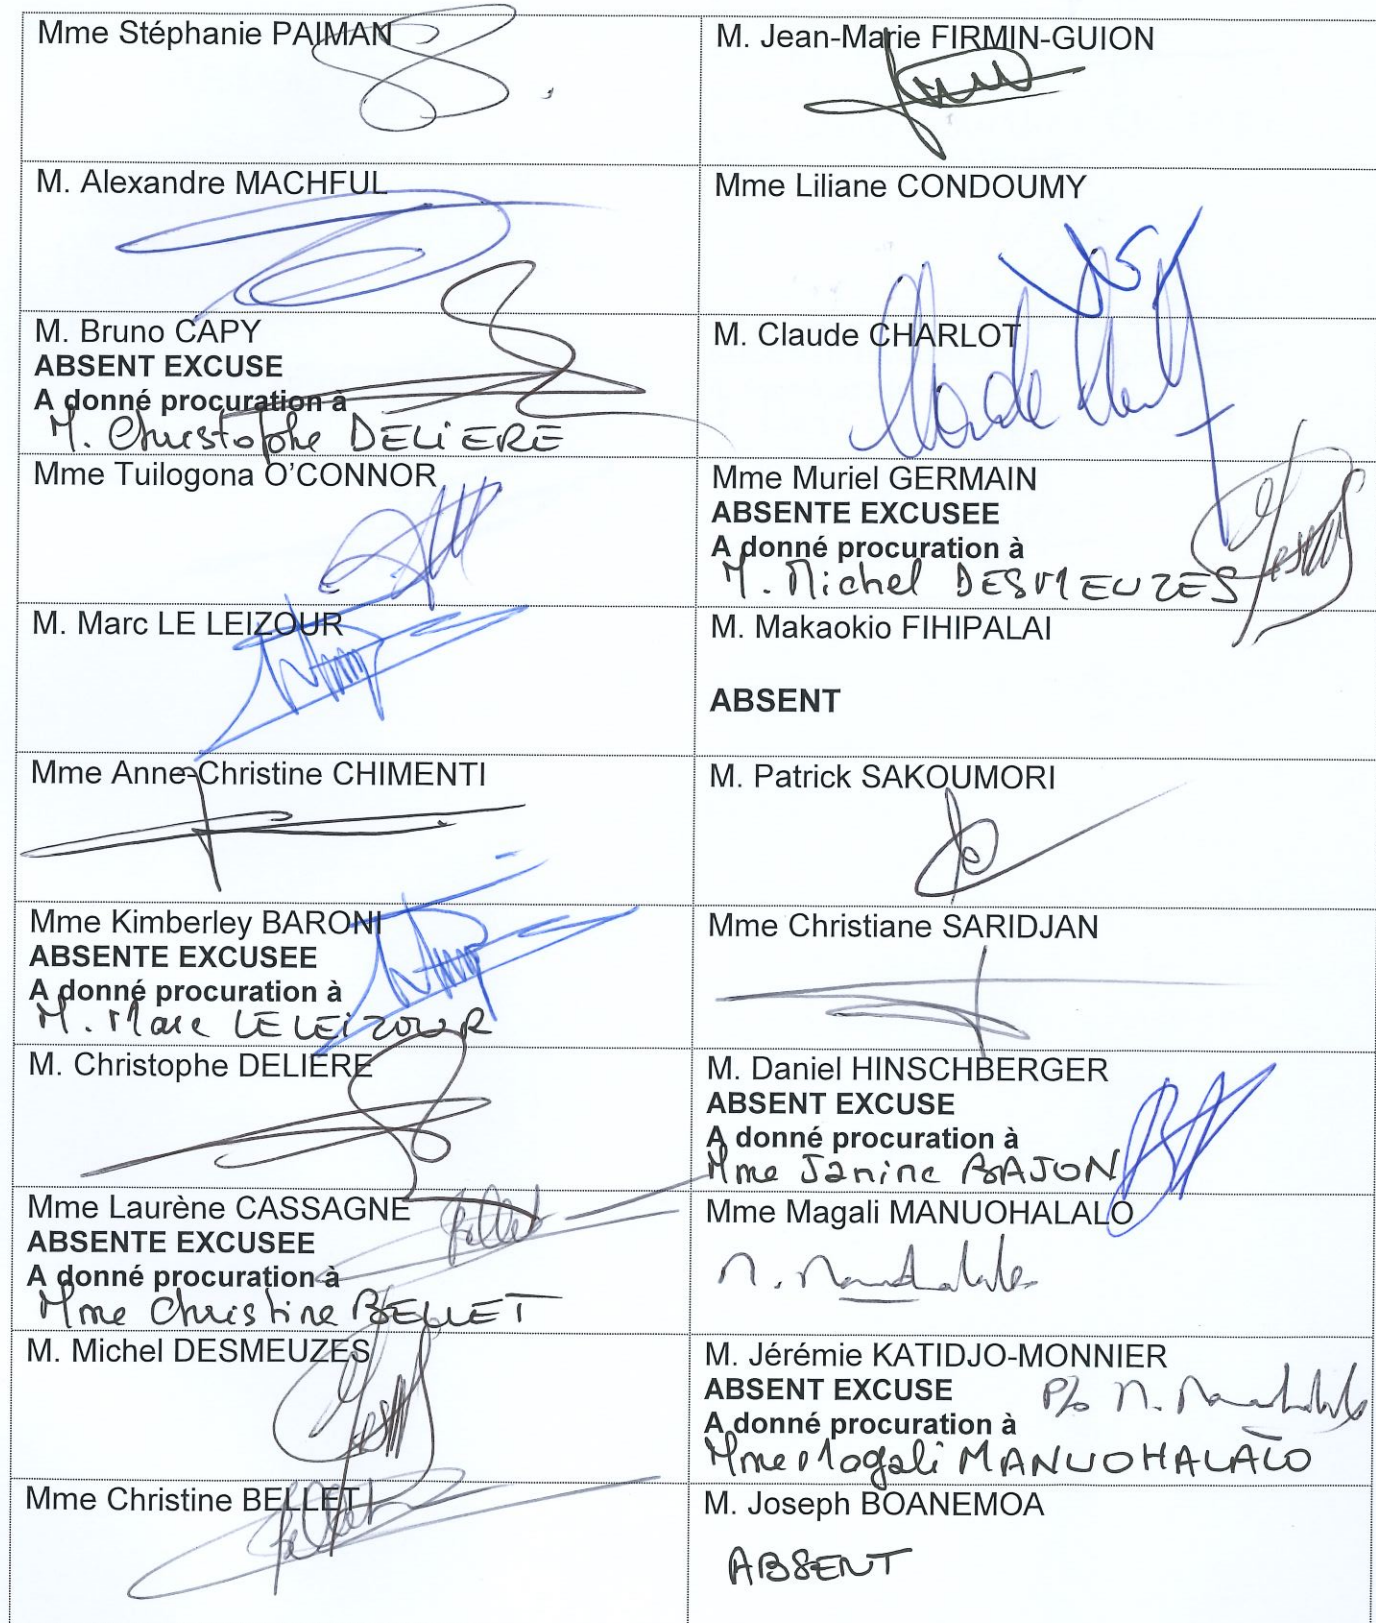 Mme Stéphanie PAIMAN
M. Jean-Marie FIRMIN-GUION
M. Alexandre MACHFUL
Mme Liliane CONDOUMY
M. Bruno CAPY
ABSENT EXCUSE
A donné procuration à
M. Christophe DELIERE
M. Claude CHARLOT
Claude
Mme Tuilogona O'CONNOR
Mme Muriel GERMAIN
ABSENTE EXCUSEE
A donné procuration à
M. Michel DESMEUZES
M. Marc LE LEIZOUR
M. Makaokio FIHIPALAI
ABSENT
Mme Anne-Christine CHIMENTI
M. Patrick SAKOUMORI
Mme Kimberley BARONI
ABSENTE EXCUSEE
A donné procuration à
M. Marc LE LEIZOUR
Mme Christiane SARIDJAN
M. Christophe DELIERE
M. Daniel HINSCHBERGER
ABSENT EXCUSE
A donné procuration à
Mme Janine BAJON
Mme Laurène CASSAGNE
ABSENTE EXCUSEE
A donné procuration à
Mme Christine BELLET
Bellet
Mme Magali MANUOHALALO
M. Michel DESMEUZES
M. Jérémie KATIDJO-MONNIER
ABSENT EXCUSE
P/o
A donné procuration à
Mme Magali MANUOHALALO
Mme Christine BELLET
Bellet
M. Joseph BOANEMOA
ABSENT